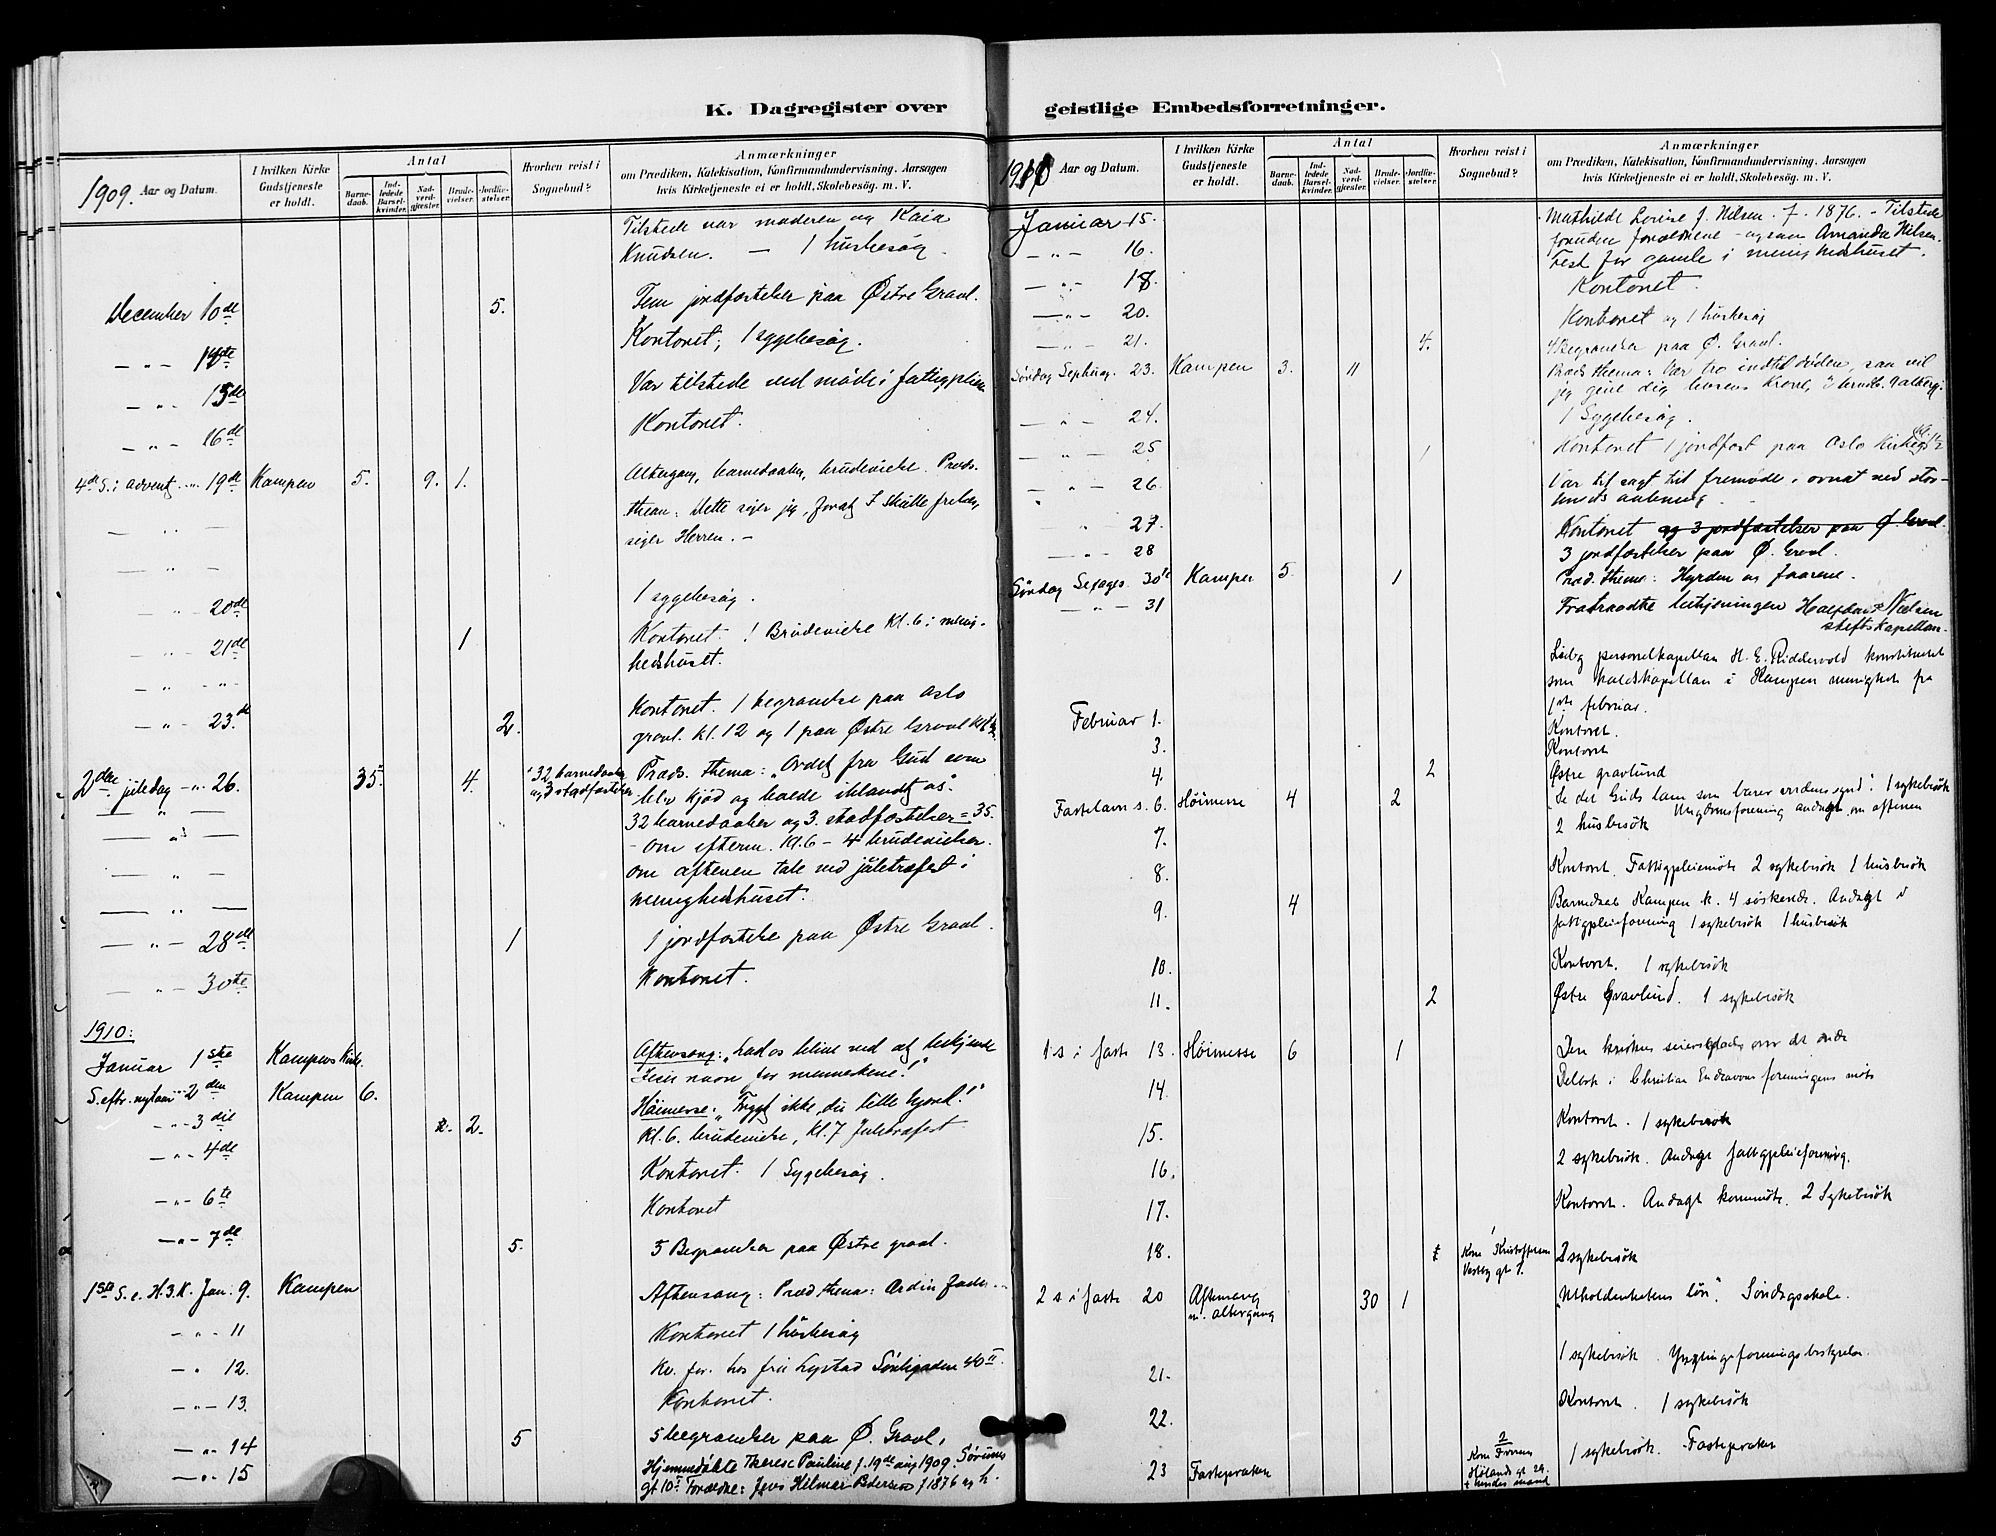 K. Dagregister over geistlige Embedsforretninger.
1909. Aar og Datum.
I hvilken Kirke Gudstjeneste er holdt.
Antal
Barnedaab.
Indledede Barselkvinder.
Nadverdgjæster.
Brudevielser.
Jordfæstelser.
Hvorhen reist i Sognebud?
Anmærkninger
om Prædiken, Katekisation, Konfirmandundervisning. Aarsagen
hvis Kirketjeneste ei er holdt, Skolebesøg. m. V.
Tilstede var moderen og Kaia
Knudsen. — 1 husbesøg.
December 10de 5. Fem jordfæstelser paa Østre Gravl.
Kontoret; 1 sygebesøg.
— „ — 14de Var tilstede ved møde i fattigplejen
— „ — 15de Kontoret.
— „ — 16de
4de S. i advent — „ — 19de Kampen 5. 9. 1. Altergang, barnedaaben, brudevielse. Præds.
thema: Dette siger jeg, forat I skulle frelses,
siger Herren. —
1 sygebesøg.
— „ — 20de Kontoret. 1 Brudevielse Kl. 6 i menig-
— „ — 21de 1 hedshuset.
Kontoret. 1 begravelse paa Oslo
— „ — 23.de 2. gravl. kl. 12 og 1 paa Østre Gravl kl
2den juledag — „ — 26. 35. 4. 32 barnedaab og 3 stadfæstelser Præds. thema: „Ordet fra Gud som
blev kjød og boede iblandt os".
32 barnedaaber og 3. stadfæstelser = 35.
— om efterm. Kl. 6 — 4 brudevielser.
om aftenen tale ved juletræfest i
menighedshuset.
— „ — 28de 1 1 jordfæstelse paa Østre Gravl.
— „ — 30te Kontoret.
1910:
Januar 1ste Kampens Kirke. Aftensang: „Lad os blive ved at bekjende
Jesu navn for menneskene!"
S. eftr. nytaar — „ — 2den Kampen 6. Høimesse: „Frygt ikke, du lille hjord!"
— „ — 3die 2. 2. Kl. 6. brudevielse, Kl. 7 Juletræfest
— „ — 4de Kontoret. 1 Sygebesøg.
— „ — 6te Kontoret
— „ — 7de 5. 5 Begravelser paa Østre gravl.
1ste S. e. H.3.K. Jan. 9. Kampen Aftensang: Præd thema:
— „ — 11 Kontoret 1 husbesøg
— „ 12. hos fru Lystad
— „ — 13. Kontoret.
— „ — 14 5 5 begravelser paa Ø. Gravl.
— „ — 15 Hjemmedøbte Therese Pauline f. 19de aug 1909. Sørums
gt 10 Forældre: Jens Hilmar Pedersen f 1876 og h.
1910 Aar og Datum.
I hvilken Kirke Gudstjeneste er holdt.
Antal
Barnedaab.
Indledede Barselkvinder.
Nadverdgjæster.
Brudevielser.
Jordfæstelser.
Hvorhen reist i Sognebud?
Anmærkninger
om Prædiken, Katekisation, Konfirmandundervisning. Aarsagen
hvis Kirketjeneste ei er holdt, Skolebesøg. m. V.
Januar 15. Mathilde Lovise f. Nilsen. f. 1876. — Tilstede
foruden forældrene — ogsaa Amanda Nilsen.
— „ — 16. Fest for gamle i menighedshuset.
— „ — 18. Kontoret.
— „ — 20. Kontoret og 1 husbesøg
— „ — 21. 4. 4 Begravelser paa Ø. Gravl.
Søndag Septuag. 23. Kampen 3. 11 Præds thema: Vær tro indtil døden, saa vil
jeg give dig livsens krone,
— „ — 24. 1 Sygebesøg.
— „ — 25 1 Kontoret 1 jordfæst paa Oslo kirkeg.
— „ — 26. Var tilsagt til fremøde i ornat ved stor-
tingets aabning
27. Kontoret og 3 jordfæstelser paa Ø. Gravl.
— „ — 28 3 jordfæstelser paa Ø. Gravl.
Søndag Sexages. 30te Kampen 5. 1 Præd. thema: Hyrden og faarene.
— „ — 31 Fratraadte betjeningen Halfdan Nielsen
stiftskapellan.
personelkapellan H. E. Riddervold konstitueret
som kaldskapellan i Kampen menighet fra
1ste februar.
Februar 1. Kontoret.
3. Kontoret
4. 2 Østre gravlund
Fastelavn s. 6. Høimesse 4 2 Se det Guds lam som bærer verdens synd". 1 sykebesøk
7. 2 husbesøk Ungdomsforening andagt om aftenen
8. Kontoret. Fattigpleiemøte 2 sykebesøk 1 husbesøk
9. 4 Barnedaab Kampen k. 4 søskende. Andagt i
fattigpleieforening 1 sykebesøk 1 husbesøk
10. Kontoret. 1 sykebesøk
11. 2 Østre Gravlund. 1 sykebesøk
1 s i faste 13. Høimesse 6 1 Den kristnes seiersglæde over det onde
14. Deltok i Christian Endeavour foreningens møte
15. Kontoret. 1 sykebesøk
16. 2 sykebesøk. Andagt fattigpleieforening.
17. Kontoret. Andagt 2 Sykebesøk
18. 1 Kone Kristoffersen
Vestby gt 2 sykebesøk
2 s i faste 20 Aftensang
m. altergang 30 1 „Utholdenhetens løn". Søndagsskole.
21. 1 sykebesøk. Ynglingeforeningsbestyrelse
22. Kontoret. 1 sykebesøk
23 Fastepræken 2
Kone
Hølands gt 24.
+ hendes mand 1 sykebesøk. Fastepræken